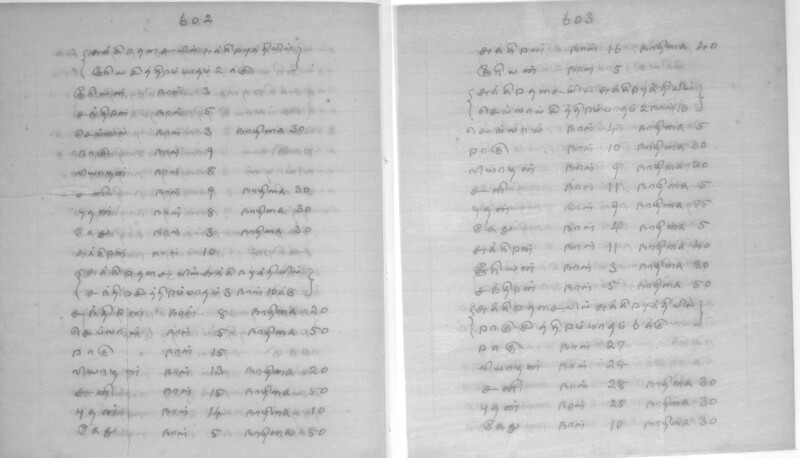 602
சுக்கிரதசையில் சுக்கிரபுத்தியில்
சூரிய அந்திரம் மாதம் 2க்கு
சூரியன் நாள் 3
சந்திரன் நாள் 5
செவ்வாய் நாள் 3 நாழிகை 30
ராகு நாள் 9
வியாழன் நாள் 8
சனி நாள் 9 நாழிகை 30
புதன் நாள் 8 நாழிகை 30
கேது நாள் 3 நாழிகை 30
சுக்கிரன் நாள் 10
சுக்கிரதசையில் சுக்கிரபுத்தியில்
சந்திர அந்திரம் மாதம் 3 நாள் 10க்கு
சந்திரன் நாள் 8 நாழிகை 20
செவ்வாய் நாள் 5 நாழிகை 50
ராகு நாள் 15
வியாழன் நாள் 13 நாழிகை 20
சனி நாள் 15 நாழிகை 50
புதன் நாள் 14 நாழிகை 10
கேது நாள் 5 நாழிகை 50
603
சுக்கிரன் நாள் 16 நாழிகை 40
சூரியன் நாள் 5
சுக்கிரதசையில் சுக்கிரபுத்தியில்
செவ்வாய் அந்திரம் மாதம் 2 நாள் 10
செவ்வாய் நாள் 4 நாழிகை 5
ராகு நாள் 10 நாழிகை 30
வியாழன் நாள் 9 நாழிகை 20
சனி நாள் 11 நாழிகை 5
புதன் நாள் 9 நாழிகை 55
கேது நாள் 4 நாழிகை 5
சுக்கிரன் நாள் 11 நாழிகை 40
சூரியன் நாள் 3 நாழிகை 30
சந்திரன் நாள் 5 நாழிகை 50
சுக்கிரதசையில் சுக்கிரபுத்தியில்
ராகு அந்திரம் மாதம் 6க்கு
ராகு நாள் 27
வியாழன் நாள் 24
சனி நாள் 28 நாழிகை 30
புதன் நாள் 25 நாழிகை 30
கேது நாள் 10 நாழிகை 30